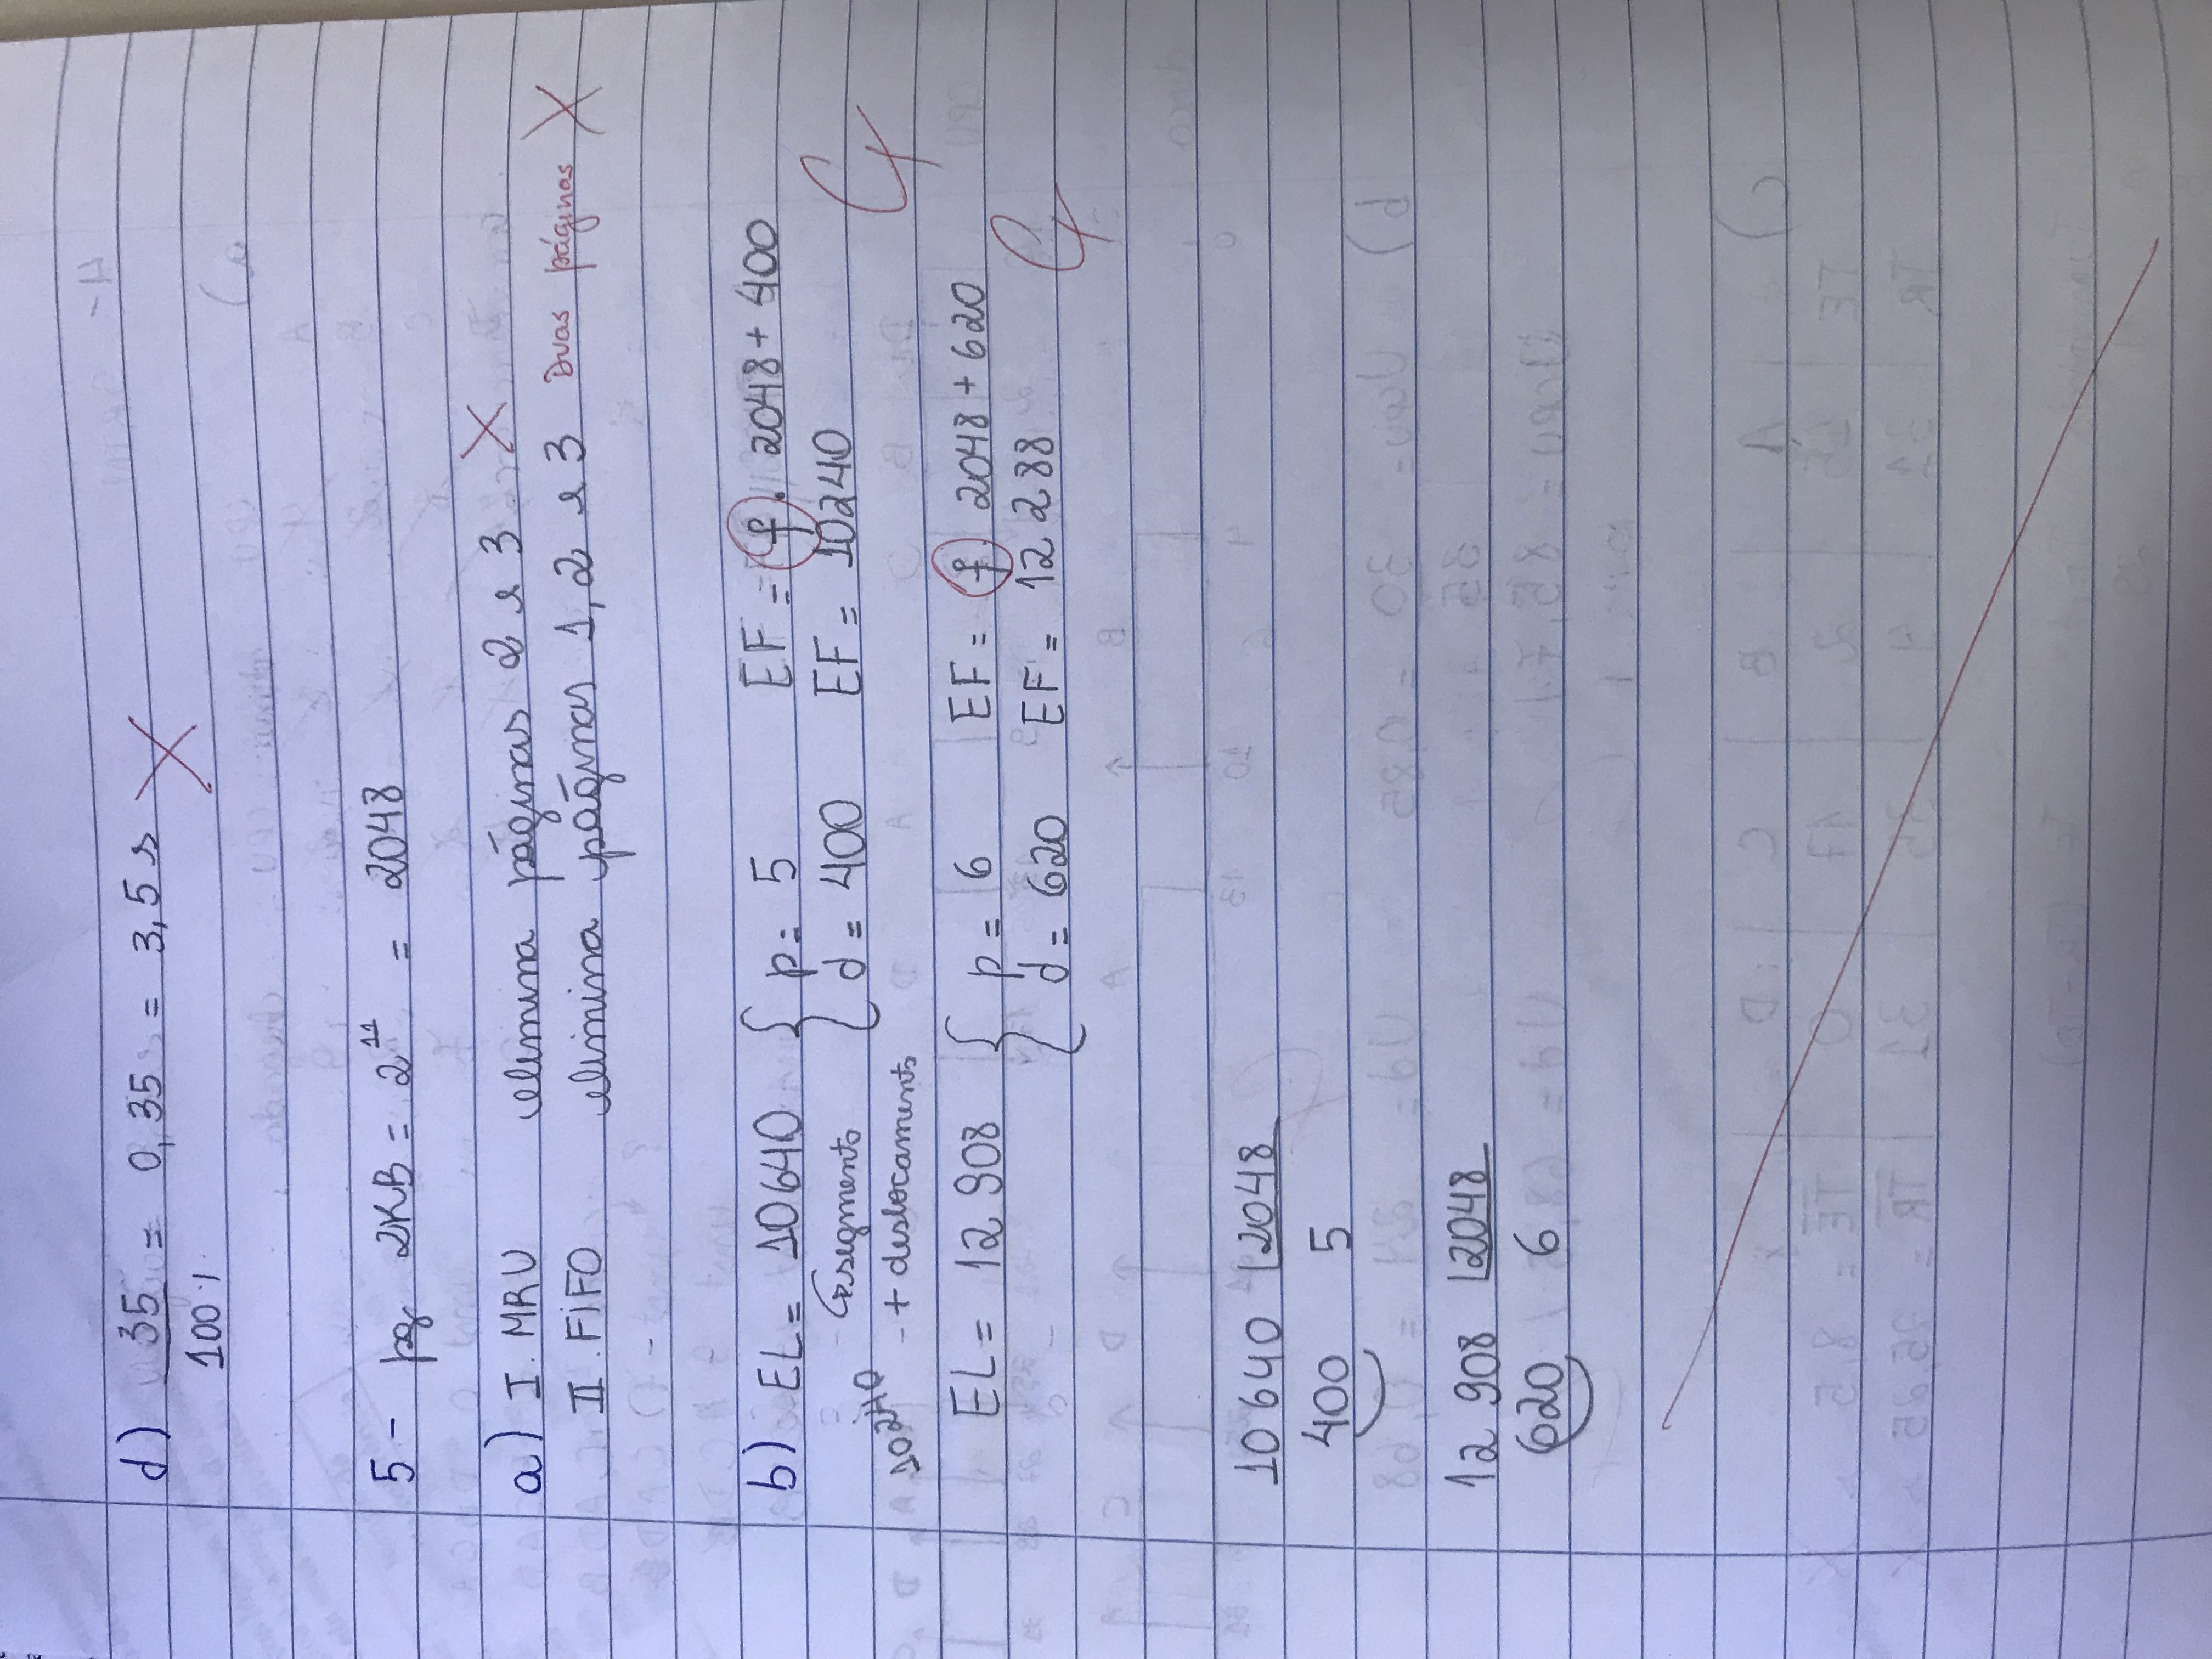 d) 35 = 0,35 = 3,5 s
100 %
5 - pg 2KB = 2^11 = 2048
a) I. MRU elimina páginas 2 e 3
II. FIFO elimina páginas 1, 2 e 3 Duas páginas
b) EL = 10640 { p = 5 EF = f . 2048 + 400
↳ segmento d = 400 EF = 10240
10240 + deslocamento
EL = 12 908 { p = 6 EF = f. 2048 + 620
d = 620 EF = 12 288
10 640 2048
400 5
12 908 2048
620 6